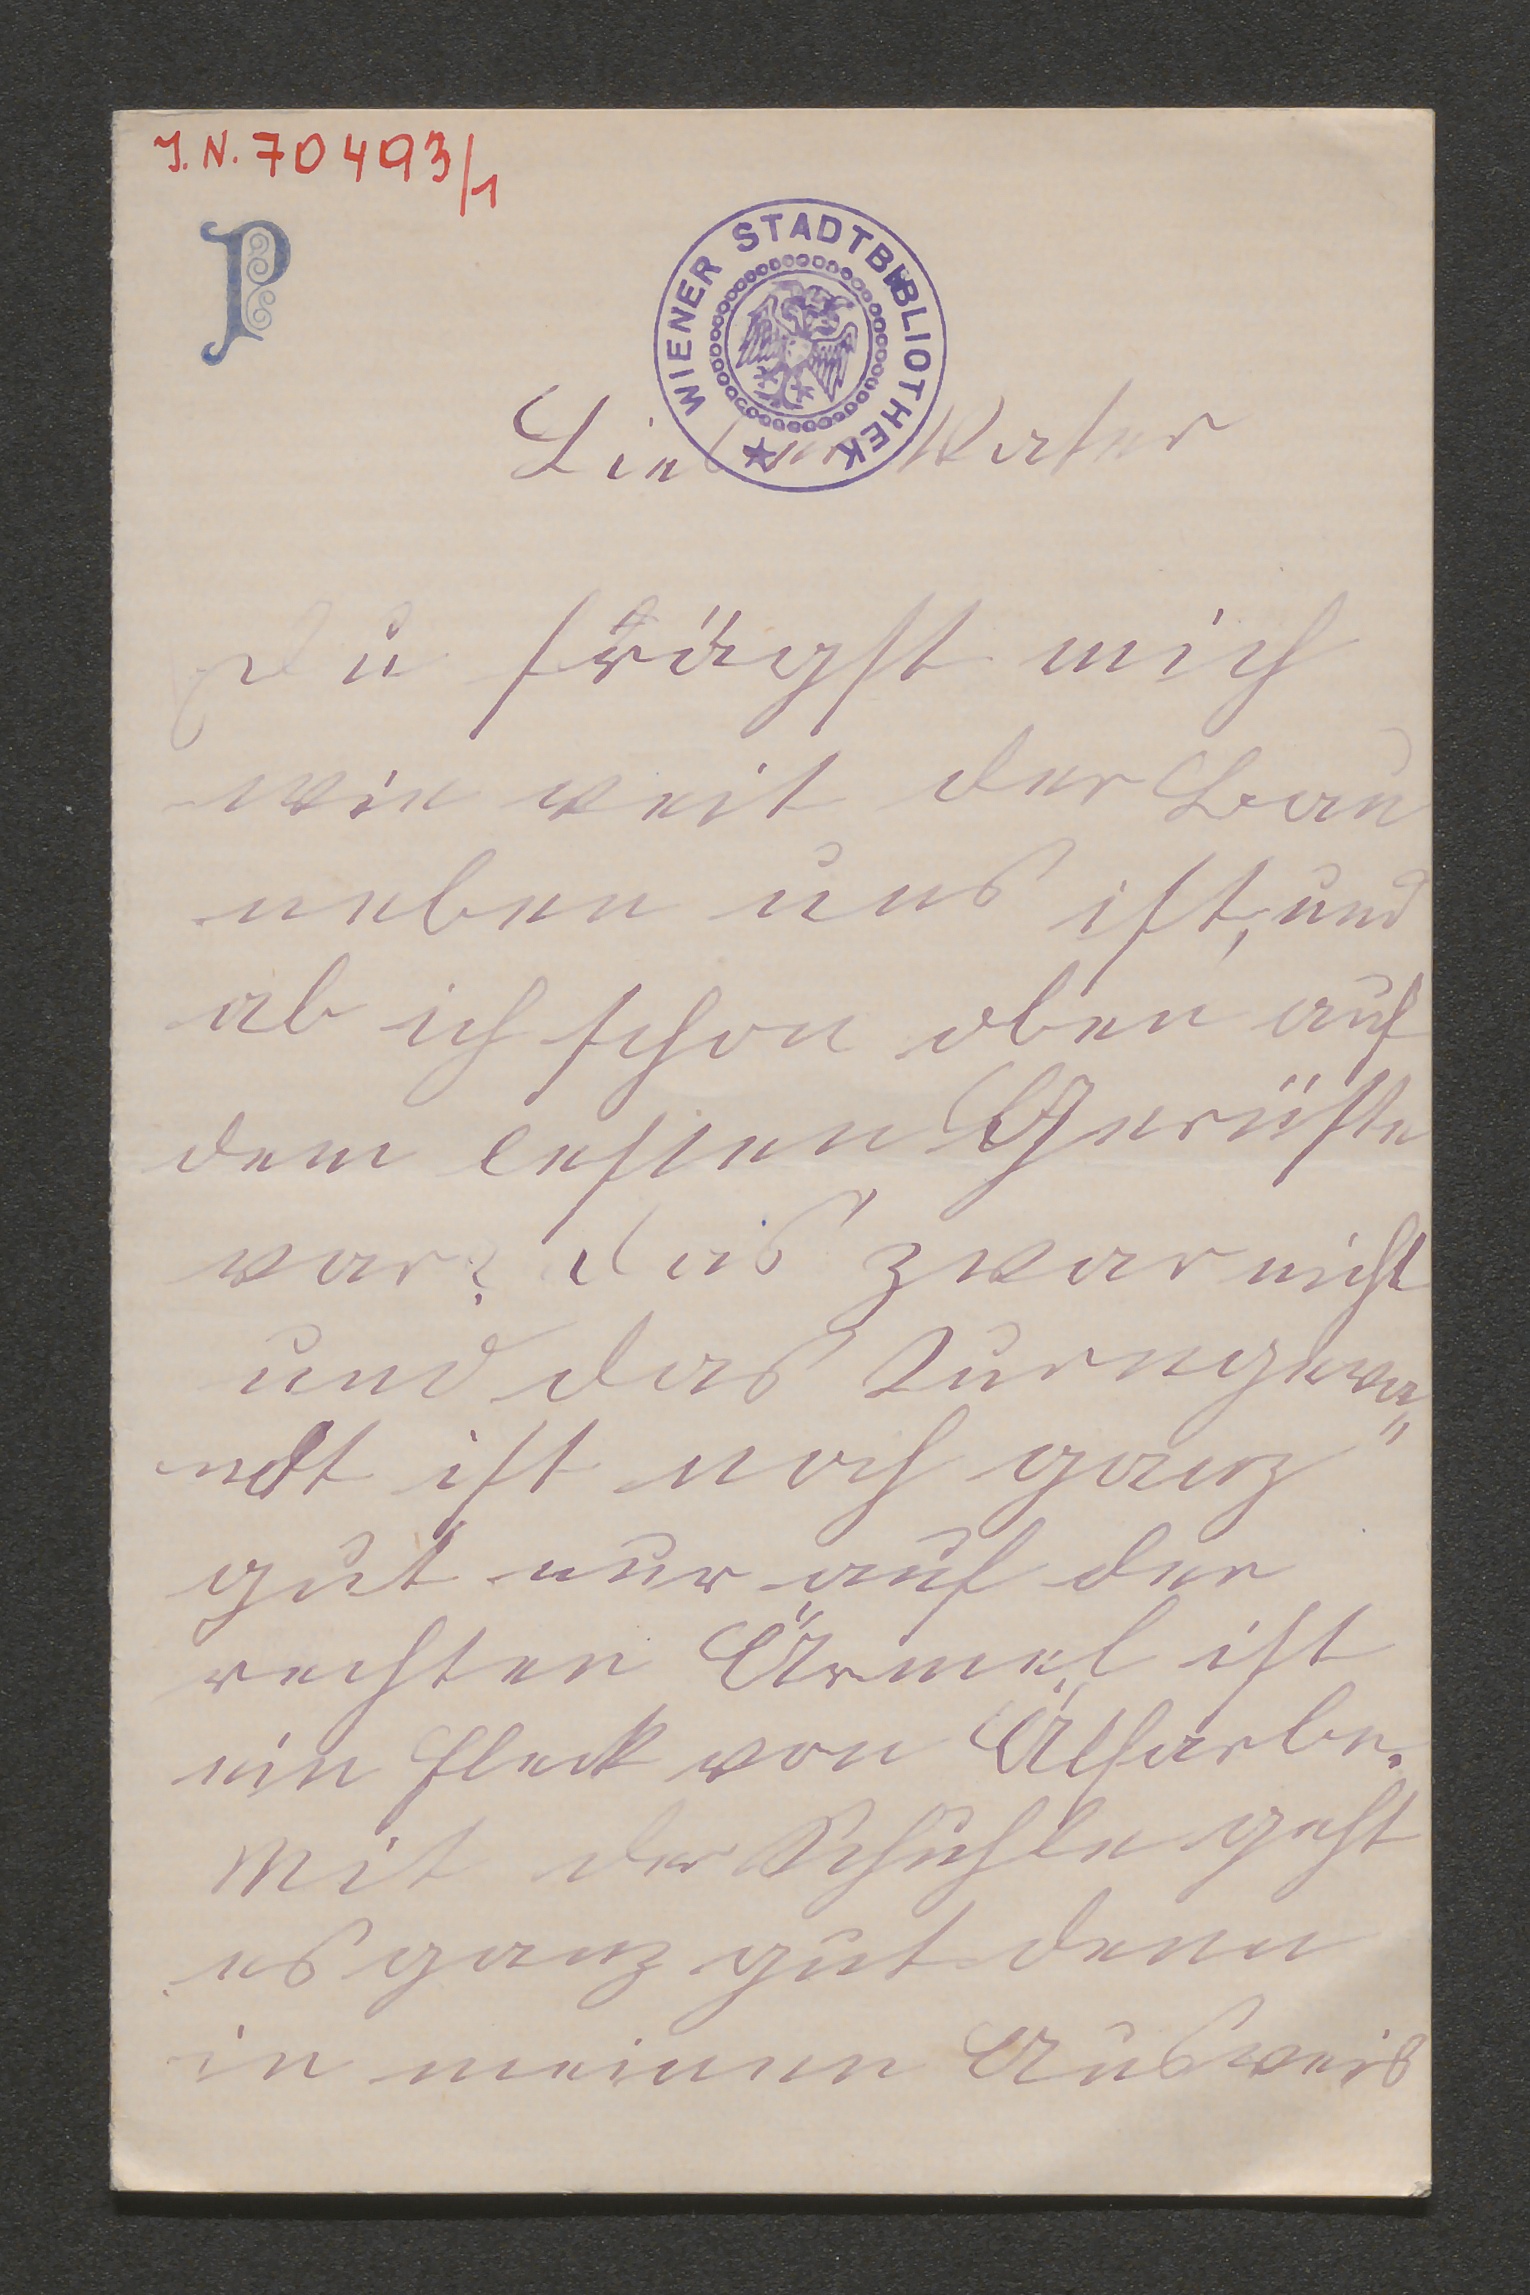 J.N. 70493/1
P
WIENER STADTBIBLIOTHEK
Lieber Vater
Du frägst mich
wie weit der Bau
neben uns ist, und
ob ich schon oben auf
dem letzten Gerüste
war? das zwar nicht
und das Turngewa„
ndt ist noch ganz
gut nur auf der
rechten Ärmel ist
ein Fleck von Ölfarbe.
Mit der Schuhle geht
es ganz gut denn
in meinen Ausweis